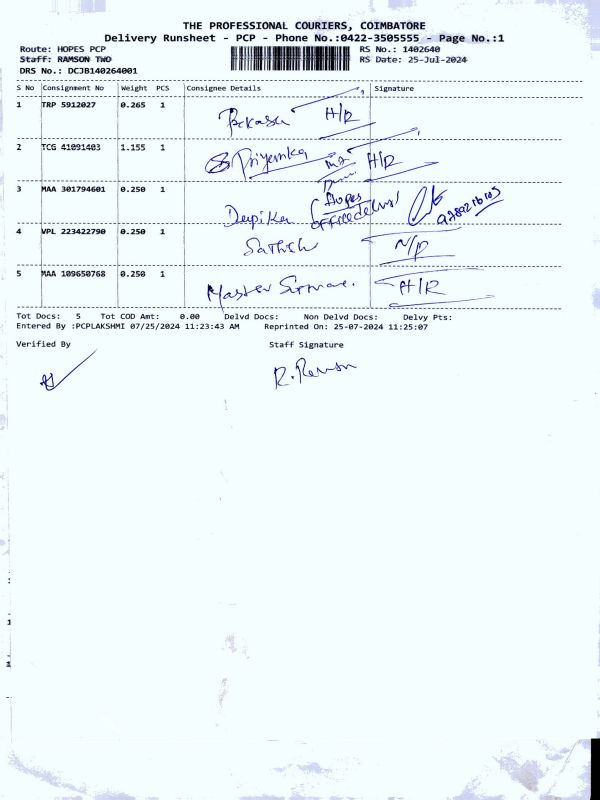 THE PROFESSIONAL COURIERS, COIMBATORE
Delivery Runsheet - PCP - Phone No.:0422-3505555 - Page No.:1
Route: HOPES PCP RS No.: 1402640
Staff: RAMSON TWO RS Date: 25-Jul-2024
DRS No.: DCJB140264001
S No Consignment No Weight PCS Consignee Details Signature
1 TRP 5912027 0.265 1 H/R
2 TCG 41091403 1.155 1 Priyanka H/R
3 MAA 301794601 0.250 1 Depika Hopes
4 VPL 223422790 0.250 1 Sathish N/D
5 MAA 109650768 0.250 1 Master H/R
Tot Docs: 5 Tot COD Amt: 0.00 Delvd Docs: Non Delvd Docs: Delvy Pts:
Entered By :PCPLAKSHMI 07/25/2024 11:23:43 AM Reprinted On: 25-07-2024 11:25:07
Verified By Staff Signature
R. Ramson